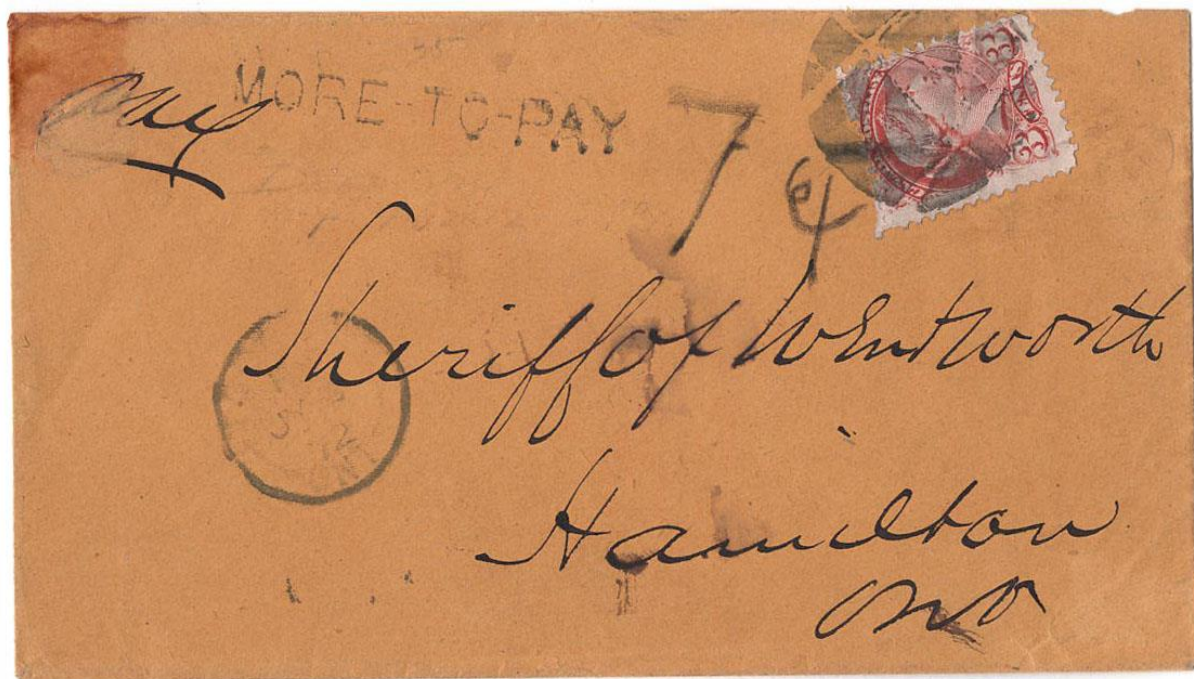 MORE-TO-PAY
7
Sheriff of Wentworth
Hamilton
Ont
3 CENTS 3